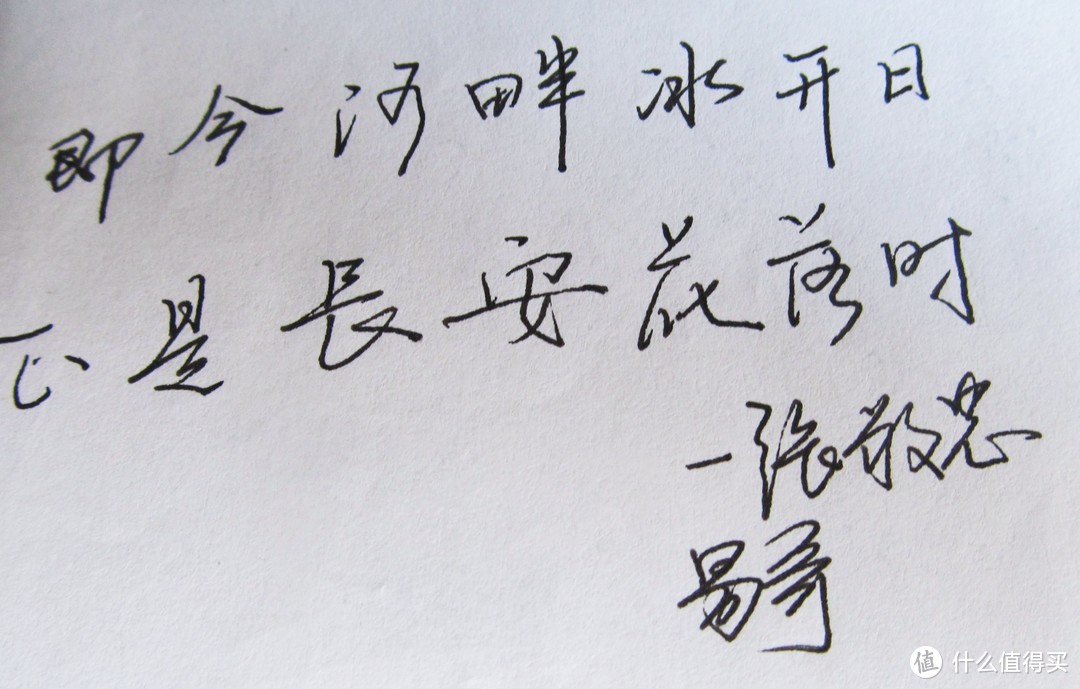 即今河畔冰开日
正是長安花落时
一张敬忠
易哥
值 什么值得买